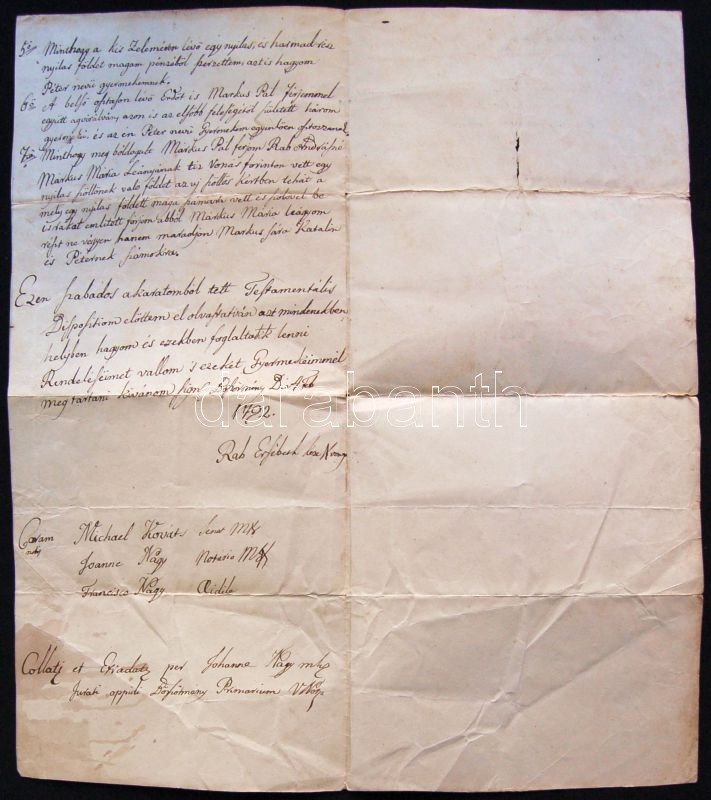 5ör Minthogy a kis Zelemérin lévő egy nyilas, és harmad rész
nyilas földet magam pénzéből szerzettem, azt is hagyom
Péter nevü gyermekemnek.
6or A belső osztáson lévő Erdőt is Markus Pál Férjemmel
együtt azon is az elsőbb feleségétől született három
és az én Péter nevü Gyermekem egyenlően osztozzanak
7er Minthogy meg bóldogult Markus Pál férjem Rab Andrásné
Markus Mária Leányának tiz Vonás forinton vett egy
nyilas szőllőnek való földet az uj szöllős kertben tehát a
mely egy nyilas földett maga számára vett és szőlővel be
is rakat emlitett férjem abból Márkus Mária leágyom
részt ne végyen hanem maradjon Markus Sára Katalin
és Péternek számokra.
Ezen szabados akaratomból tett Testamentális
Dispositiom előttem el olvastatván azt mindenekben
helyben hagyom és ezekben foglaltatik lenni
Rendelésemet vallom 's ezeket Gyermekeimmel
meg tartani kivánom Böszörmény, D.
1792.
Rab Ersébeth keze X vonása
Coram Michael Kovács Senat Mk
nobis Joanne Nagy Notario Mk
Francisco Nagy Aidile
Collatz et Extradatz per Johanne Nagy mk
Jurati oppidi Böszörmény Primarium
darabanth